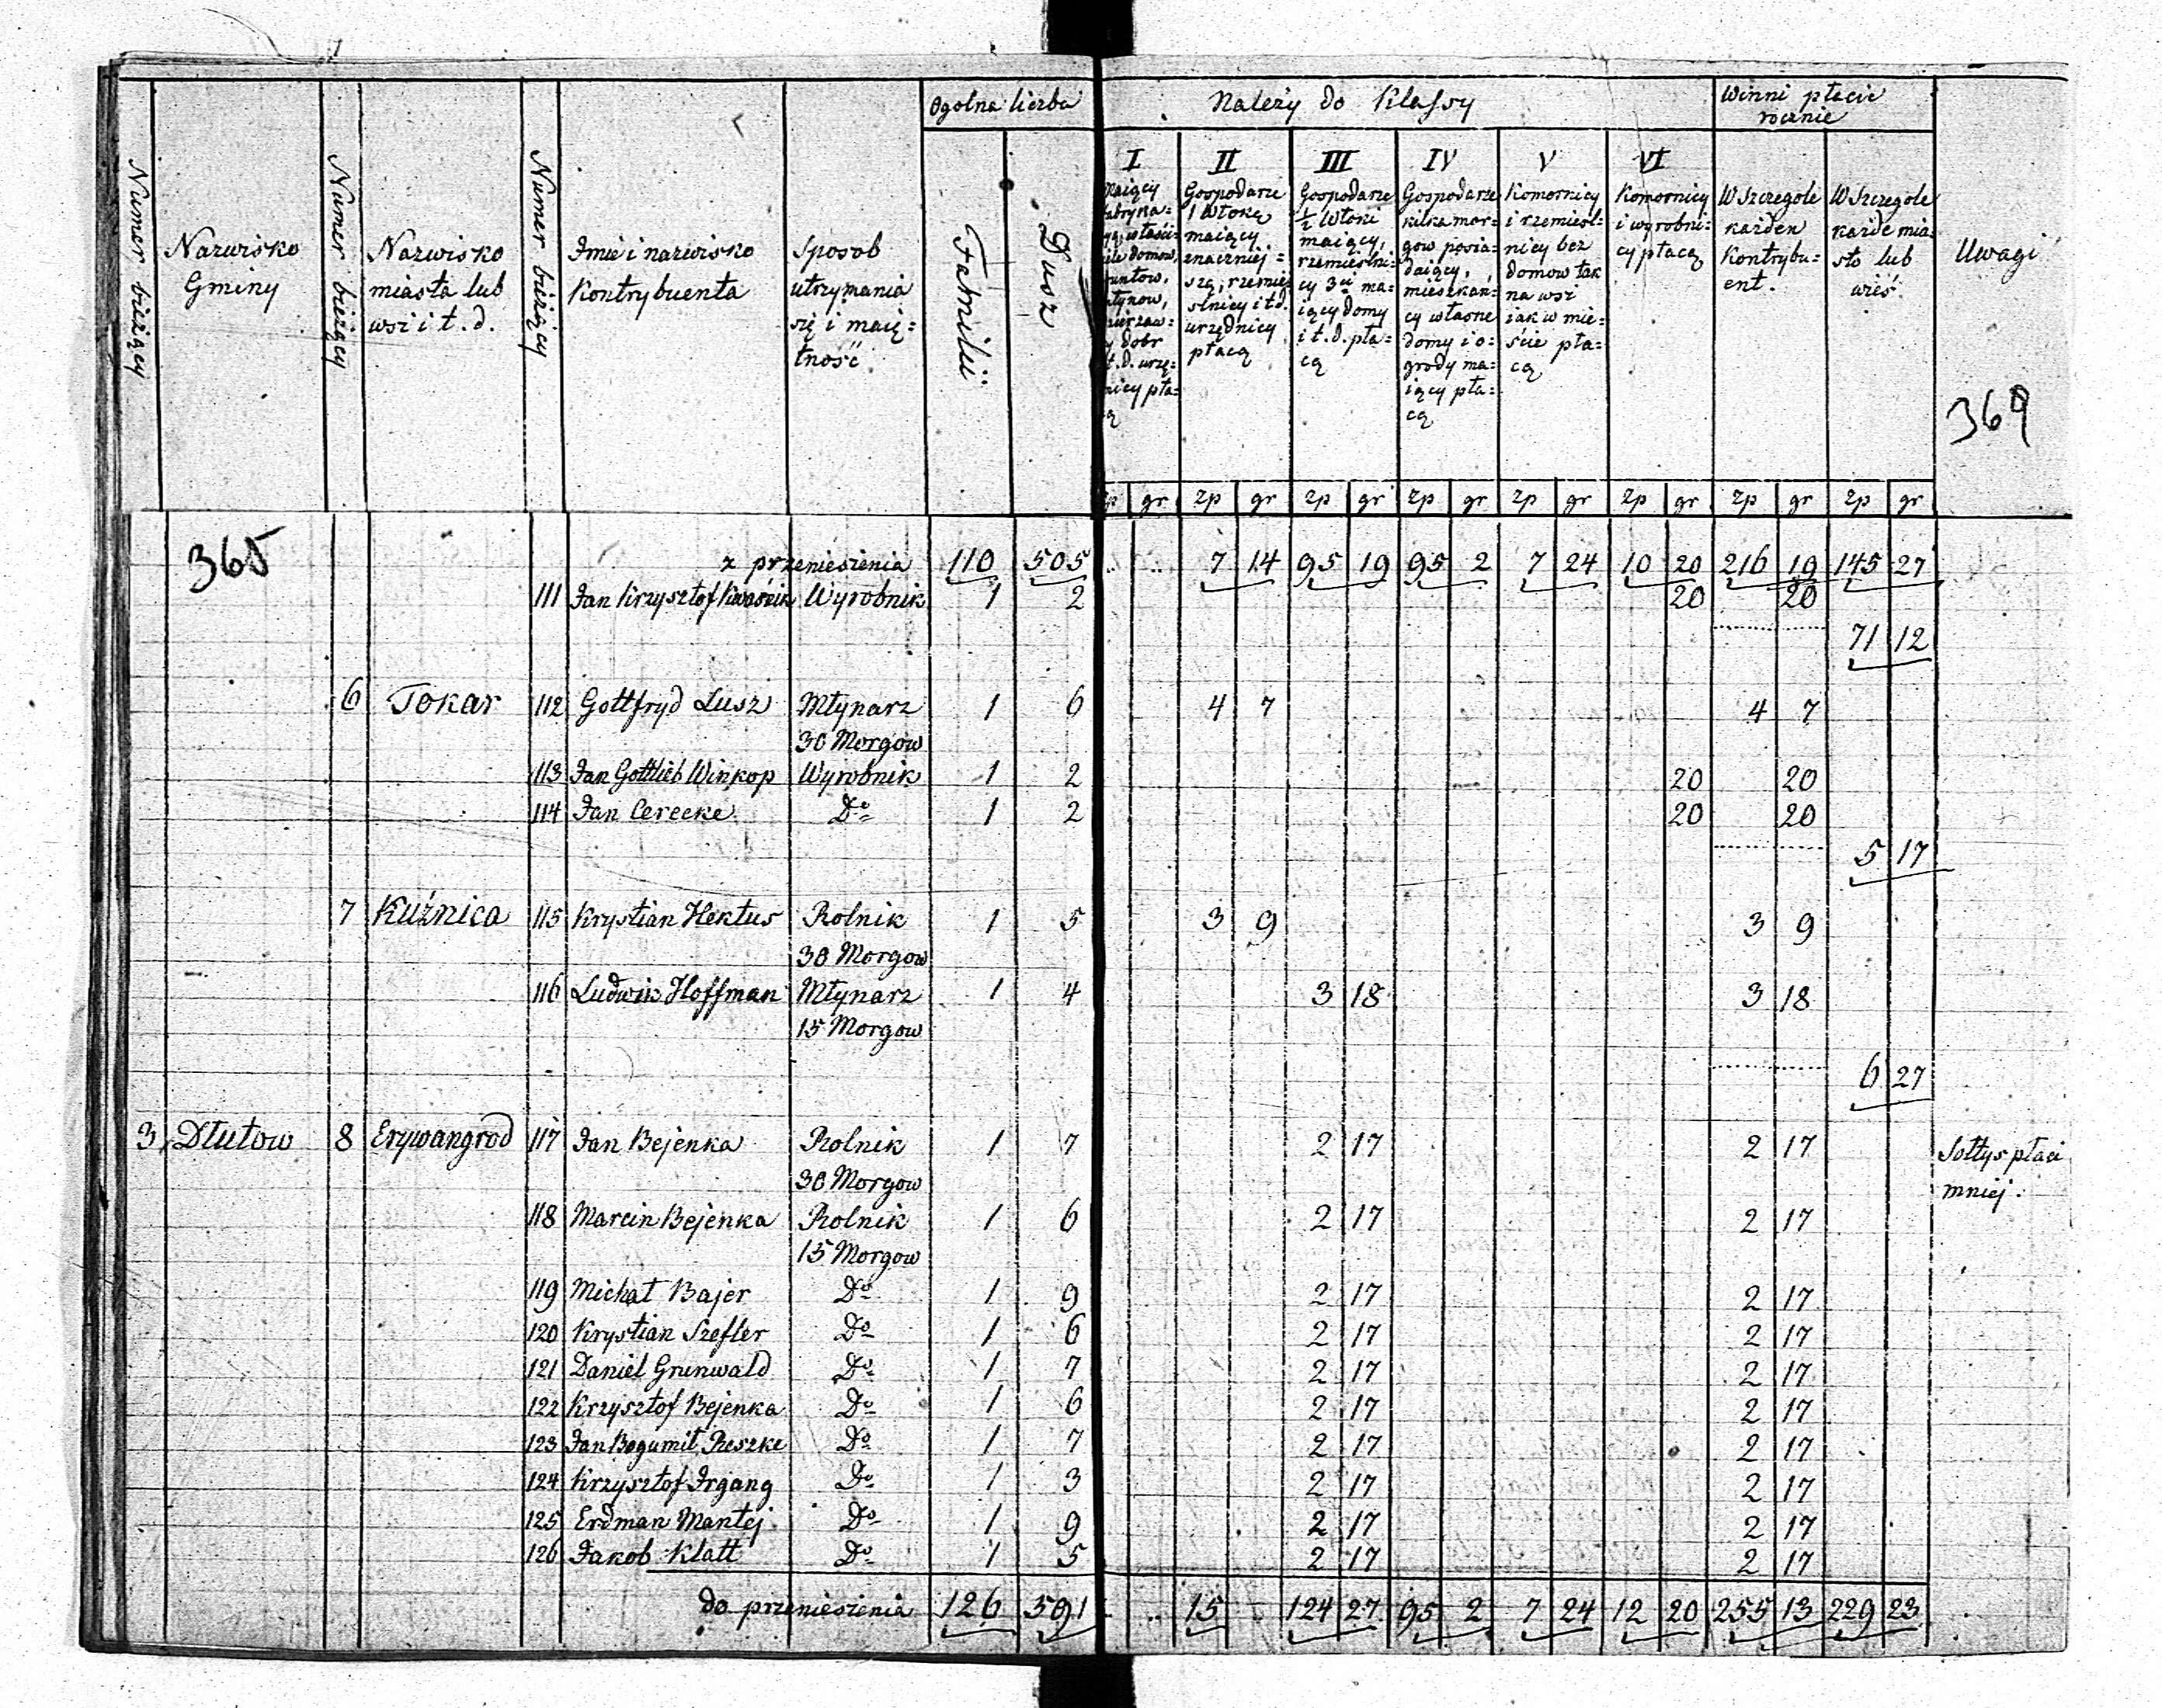 Ogolna liczba
Należy do Klassy
Winni płacić
rocznie
Numer bieżący
Nazwisko
Gminy
Numer bieżący
Nazwisko
miasta lub
wsi i t. d.
Numer bieżący
Imie i nazwisko
Kontrybuenta
Sposob
utrzymania
się i maię=
tność
Familii
Dusz
I
II
Gospodarze
1 Włokę
maiący
znaczniej=
szą, rzemie
slnicy i t d.
urzędnicy
płacą
III
Gospodarze
½ Włoki
maiący,
rzemieślni=
cy 3ci ma=
iący domy
i t. d. pła=
cą
IV
Gospodarze
kilka mor=
gow posia=
daiący,
mieszkań=
cy własne
domy i o=
grody ma=
iący pła=
cą
V
Komornicy
i rzemiesl=
nicy bez
domow tak
na wsi
iak w mie=
ście pła=
cą
VI
Komornicy
i wyrobni=
cy płacą
W Szczegole
każden
Kontrybu=
ent.
W Szczegole
każde mia=
sto lub
wieś.
Uwagi
369
gr zp gr zp gr zp gr zp gr zp gr zp gr zp gr
365
z przeniesienia 110 505 7 14 95 19 95 2 7 24 10 20 216 19 145 27
111 Jan Krzysztof Kwaśnik Wyrobnik 1 2 20 20
71 12
6 Tokar 112 Gottfryd Lusz Młynarz 1 6 4 7 4 7
30 Morgow
113 Jan Gottlieb Winkop Wyrobnik 1 2 20 20
114 Jan Cerecke Do 1 2 20 20
5 17
7 Kuźnica 115 Krystian Hektus Rolnik 1 5 3 9 3 9
30 Morgow
116 Ludwik Hoffman Młynarz 1 4 3 18 3 18
15 Morgow
6 27
3 Dłutow 8 Erywangrod 117 Jan Bejenka Rolnik 1 7 2 17 2 17 Sołtys płaci
30 Morgow mniej.
118 Marcin Bejenka Rolnik 1 6 2 17 2 17
15 Morgow
119 Michał Bajer Do 1 9 2 17 2 17
120 Krystian Szefler Do 1 6 2 17 2 17
121 Daniel Grunwald Do 1 7 2 17 2 17
122 Krzysztof Bejenka Do 1 6 2 17 2 17
123 Jan Bogumił Reszke Do 1 7 2 17 2 17
124 Krzysztof Irgang Do 1 3 2 17 2 17
125 Erdman Mantej Do 1 9 2 17 2 17
126 Jakob Klatt Do 1 5 2 17 2 17
do przeniesienia 126 591 15 124 27 95 2 7 24 12 20 255 13 229 23